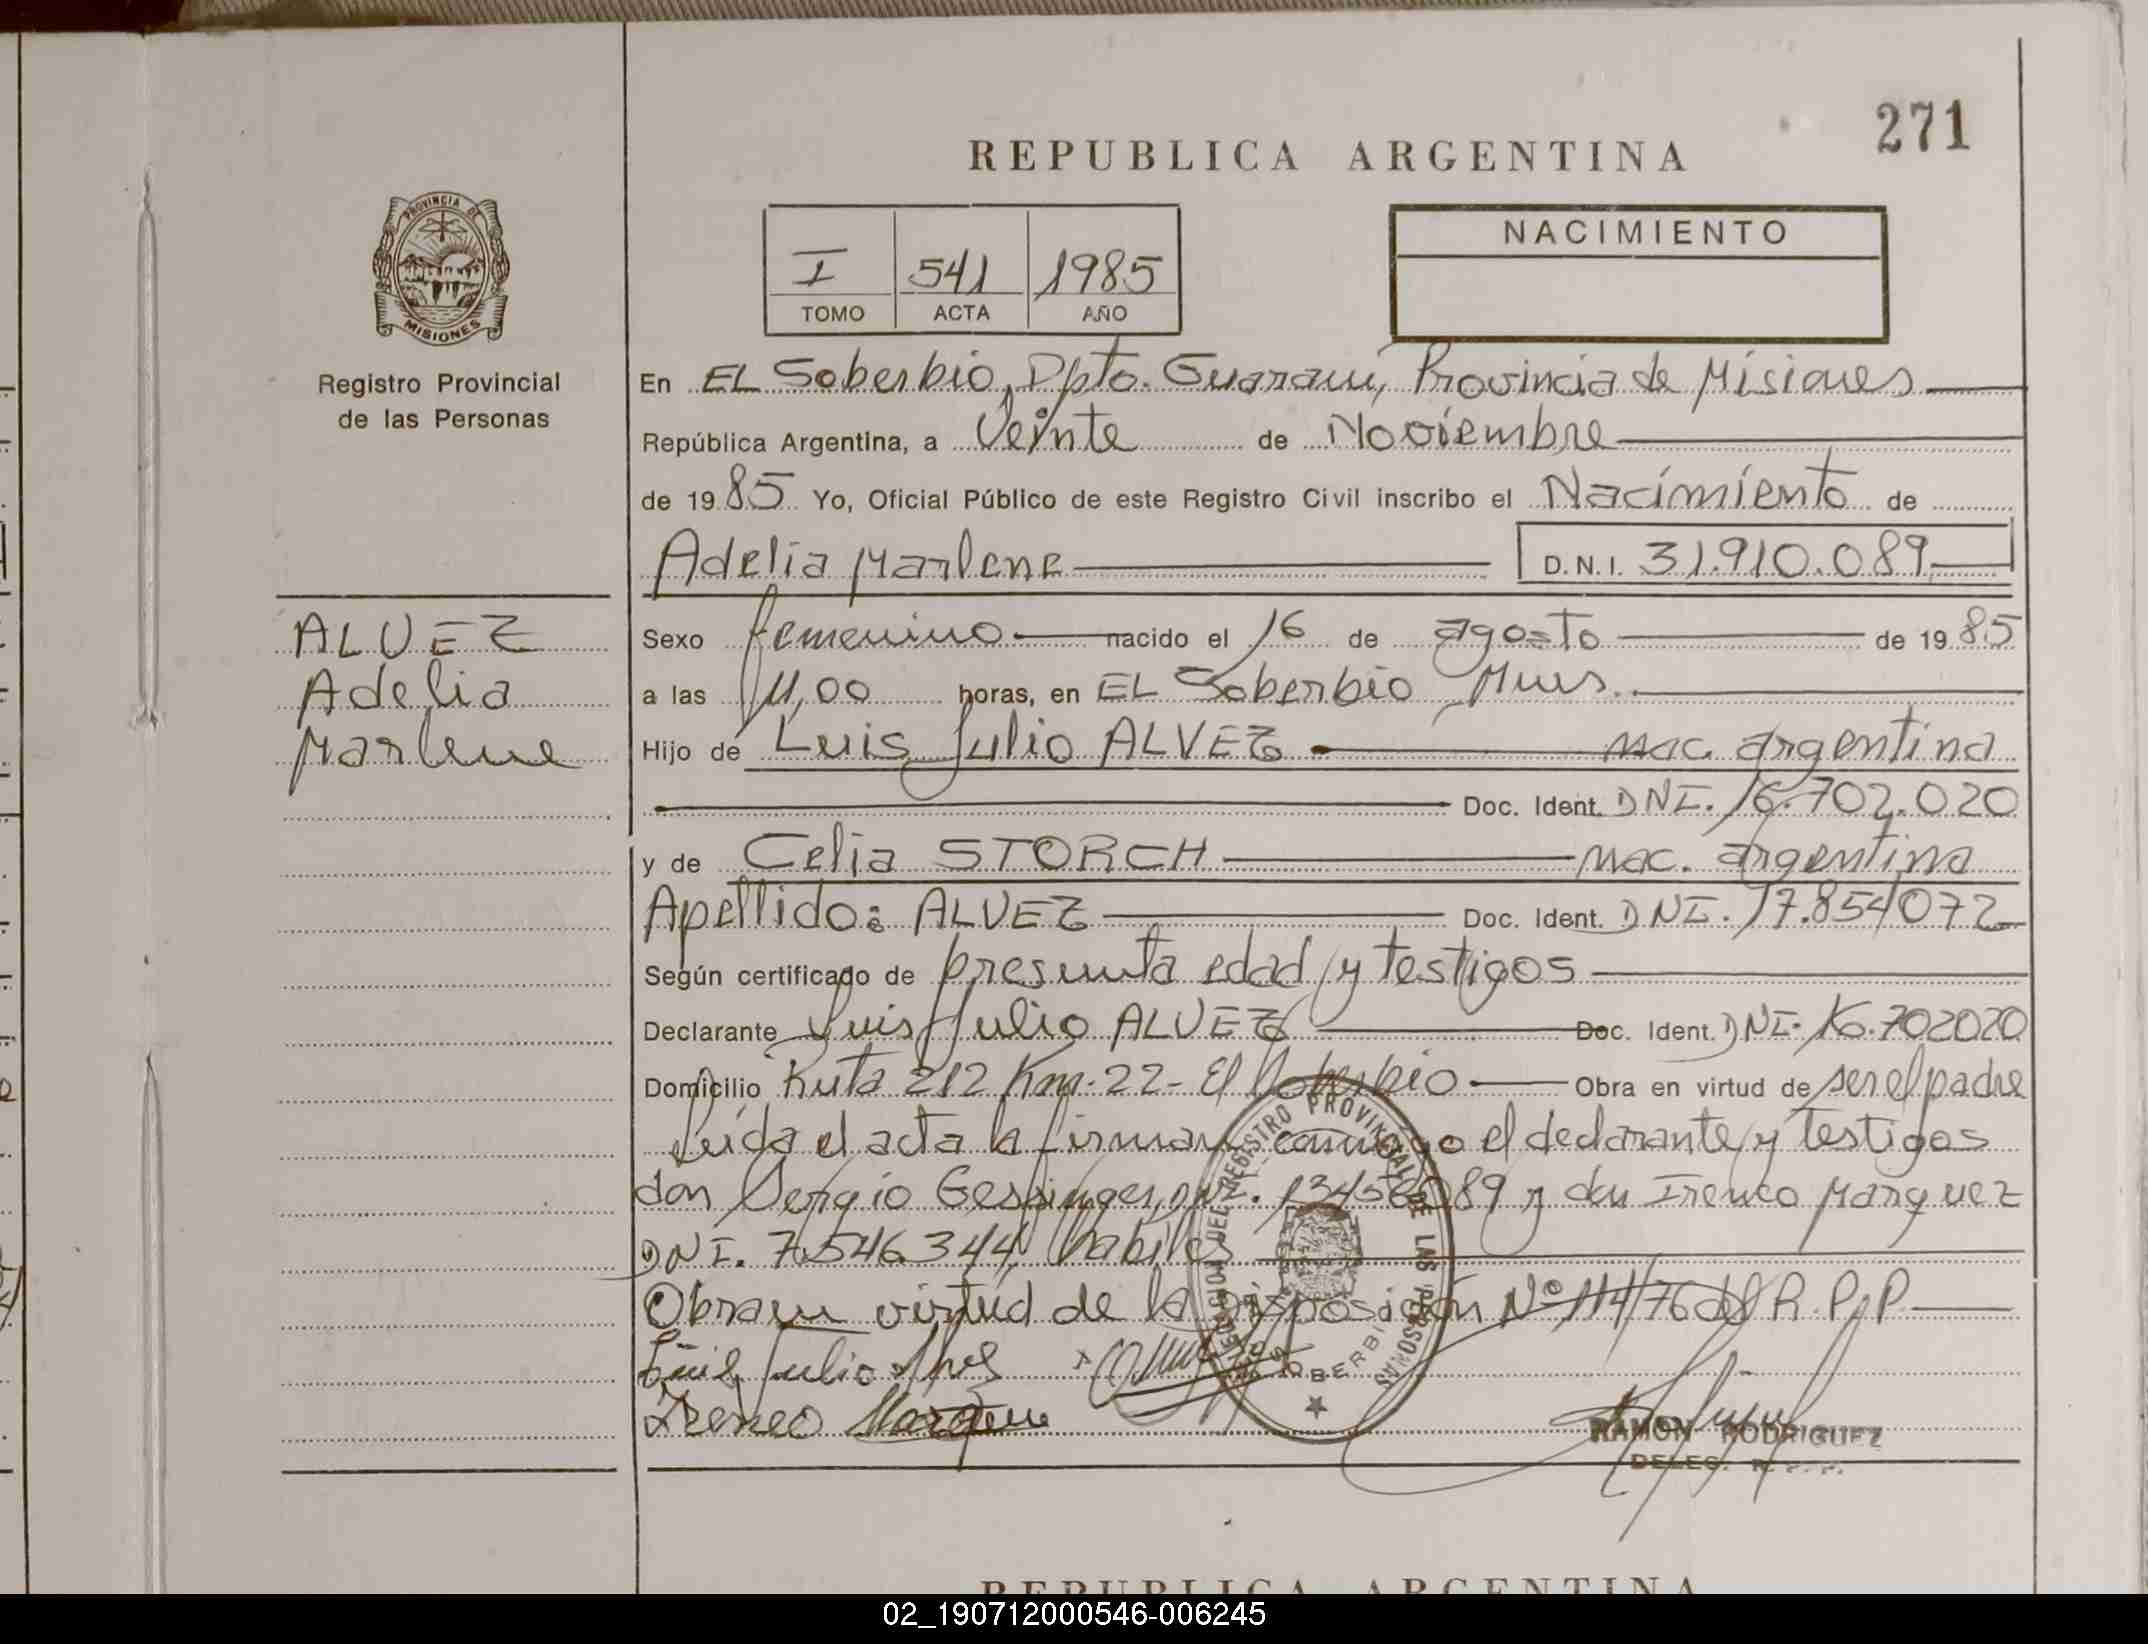 271
REPUBLICA ARGENTINA
PROVINCIA DE
MISIONES
Registro Provincial
de las Personas
I 541 1985
TOMO ACTA AÑO
NACIMIENTO
En EL Soberbio, Dpto. Guaraní, Provincia de Misiones
República Argentina, a Veinte de Noviembre
de 1985 Yo, Oficial Público de este Registro Civil inscribo el Nacimiento de
Adelia Marlene D.N.I. 31.910.089
ALVEZ
Adelia
Marlene
Sexo femenino nacido el 16 de agosto de 1985
a las 11,00 horas, en EL Soberbio Mnes.
Hijo de Luis Julio ALVEZ nac. argentina
Doc. Ident. DNI. 16.702.020
y de Celia STORCH nac. argentina
Apellido: ALVEZ Doc. Ident. DNI. 17.854072
Según certificado de presunta edad y testigos
Declarante Luis Julio ALVEZ Doc. Ident. DNI. 16.702020
Domicilio Ruta 212 Km. 22- El Soberbio Obra en virtud de ser el padre
Leída el acta la firman conmigo el declarante y testigos
don Sergio Gessinger, y don Ireneo Marquez
DNI. 7.546.344, habiles
Obra en virtud de la Disposición Nº 114/76 del R.P.P
Luis Julio Alvez
Ireneo Marquez
REGISTRO PROVINCIAL DE LAS PERSONAS
RAMON RODRIGUEZ
DELEG.
REPUBLICA ARGENTINA
02_190712000546-006245